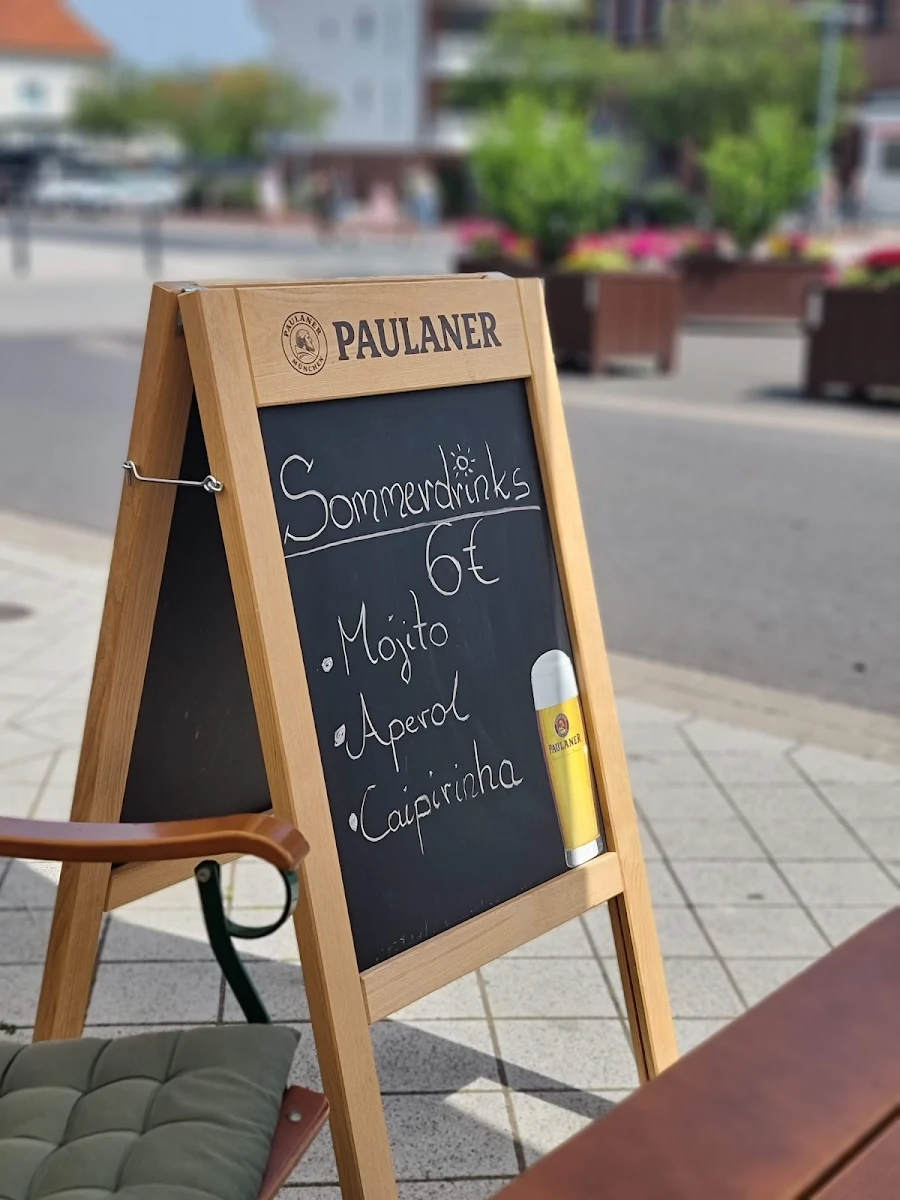 PAULANER
MÜNCHEN
PAULANER
Sommerdrinks
6€
• Mojito
• Aperol
• Caipirinha
PAULANER